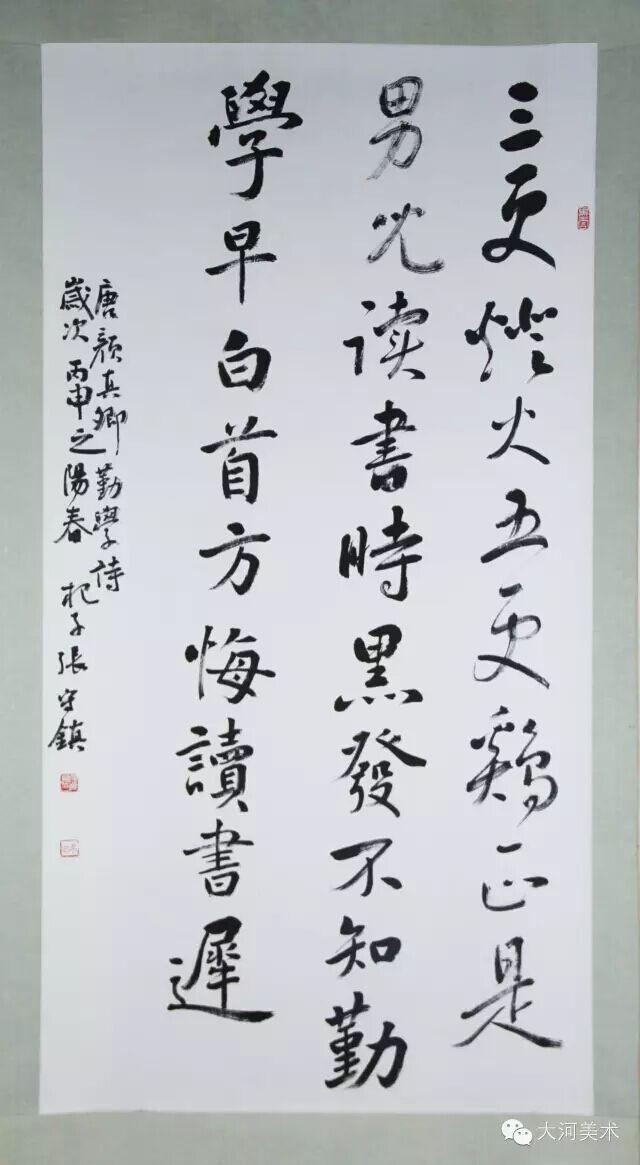 三更燈火五更鷄正是
男児读書時黑發不知勤
學早白首方悔讀書遲
唐顔真卿勤學诗
歲次丙申之陽春 杞子張守鎮
大河美术